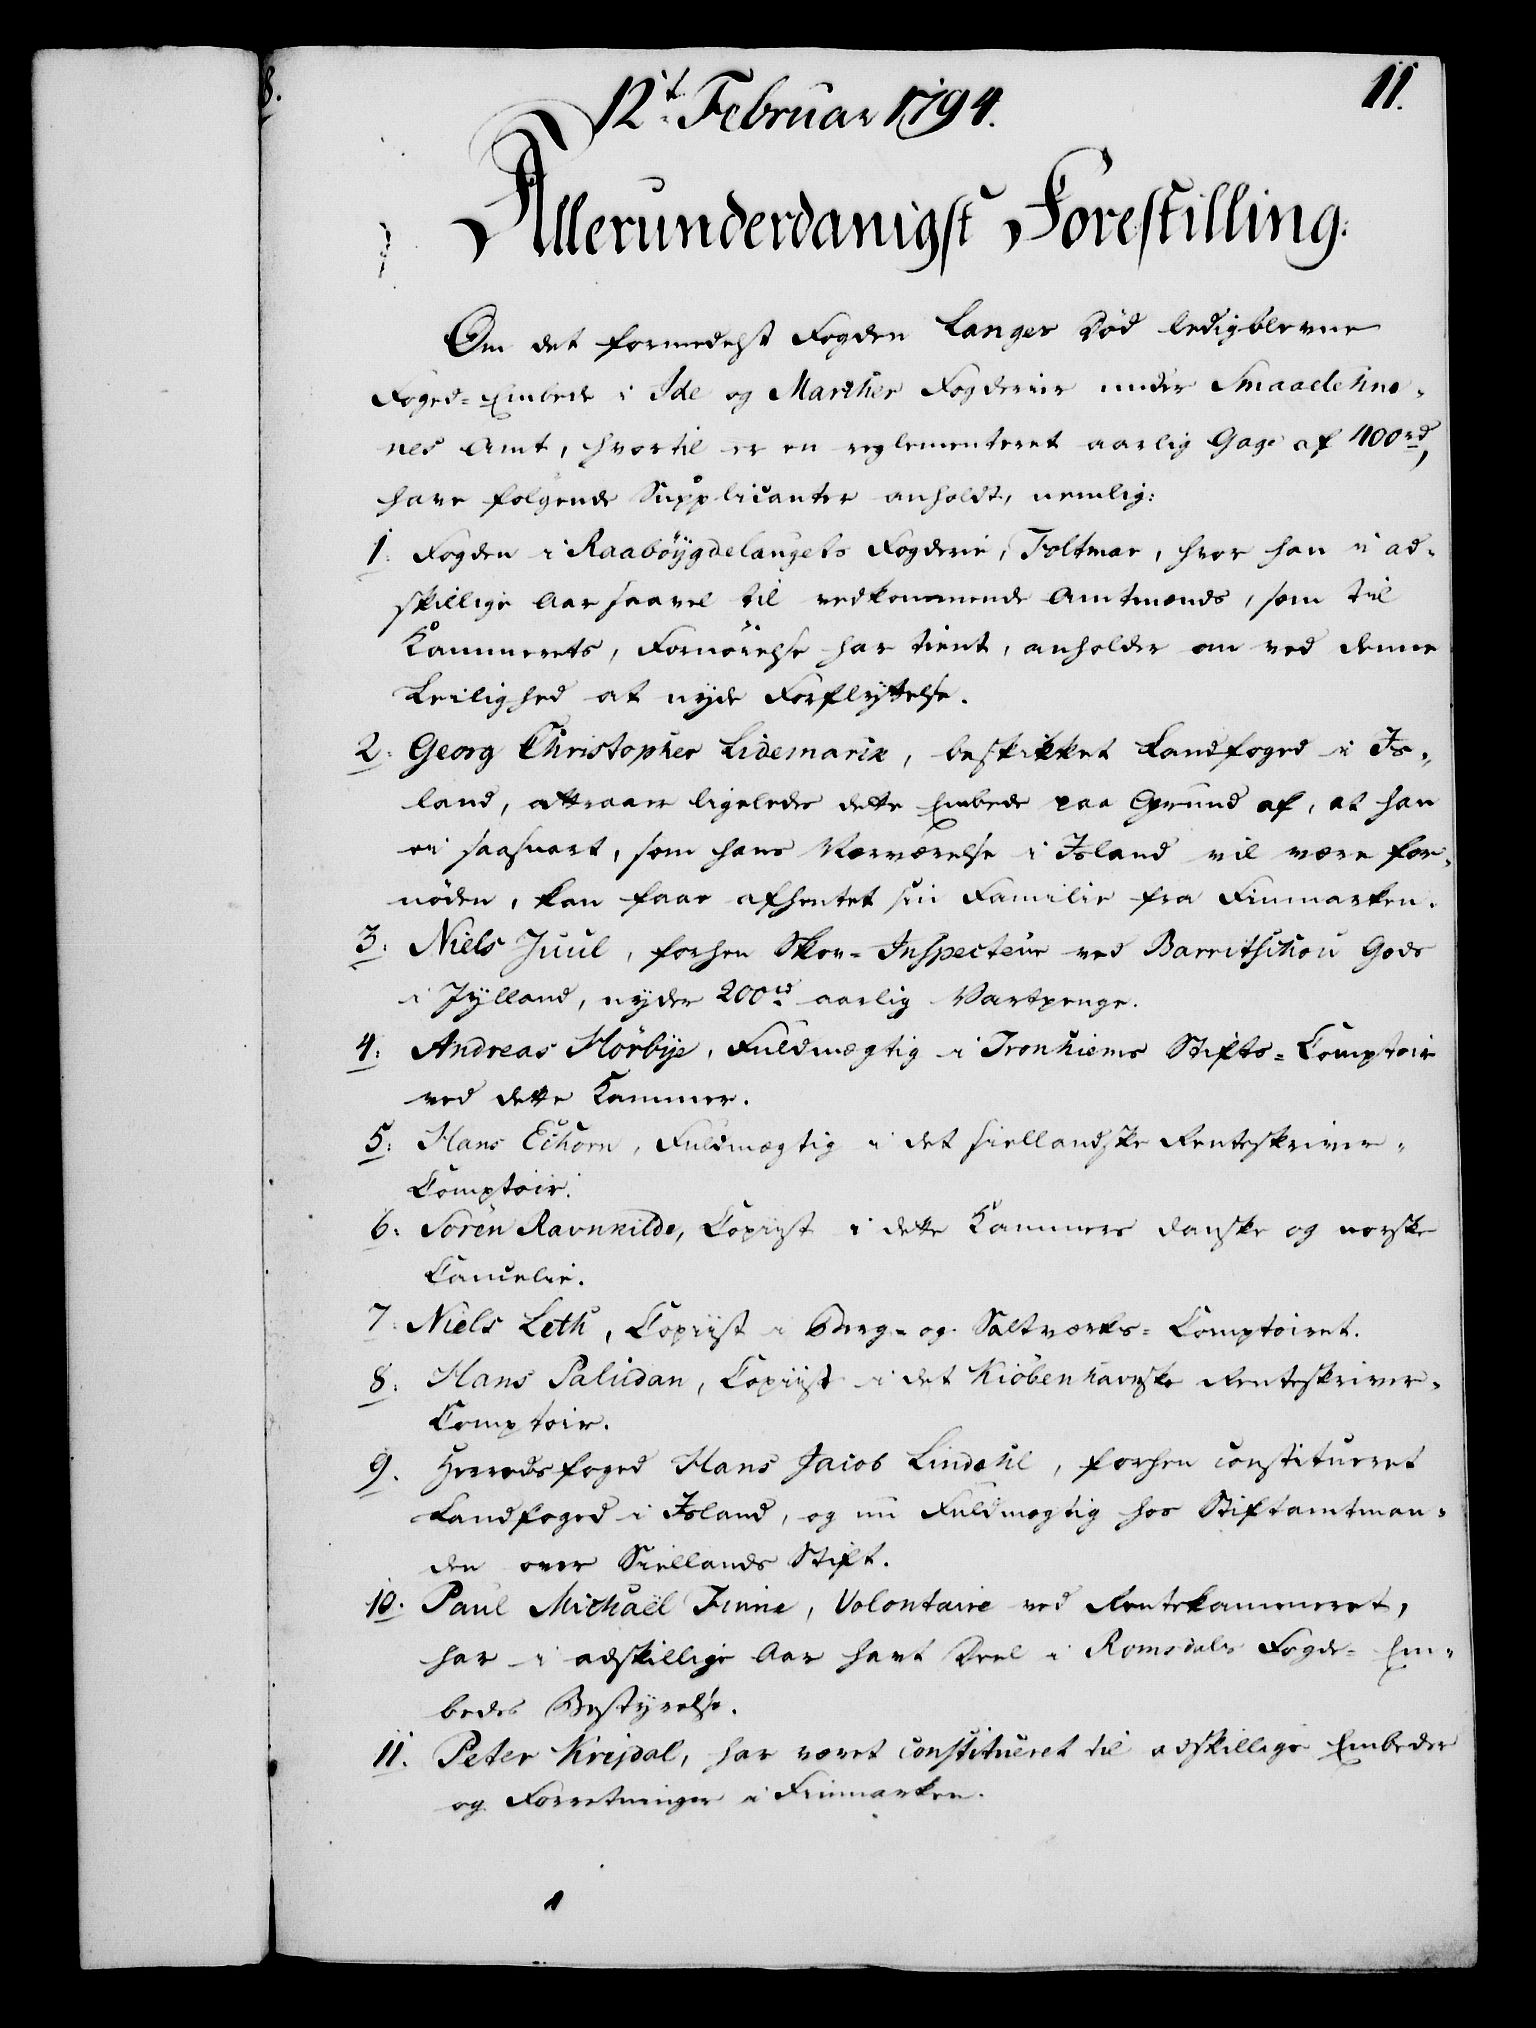 8.
12t Februar 1794.
11.
Allerunderdanigst Forestilling:
Om det formedelst Fogden Langes Død ledigblevne
Foged-Embede i Ide og Marcher Fogderier under Smaalehne-
nes Amt, hvortil er en reglementeret aarlig Gage af 400rd,
have følgende Supplicanter anholdt, nemlig:
1. Fogden i Raabøijgdelaugets Fogderie, Foltmar, hvor han i ad-
skillige Aar saavel til vedkommende Amtmænds, som til
Kammerets, Fornøielse har tient, anholder om ved denne
Leilighed at nyde Forflyttelse.
2. Georg Christopher Lidemarck, beskikket Landfoged i Is-
land, attraaer ligeledes dette Embede paa Grund af, at han
ei saasnart, som hans Nærværelse i Island vil være for-
nöden, kan faae afhentet sin Familie fra Finmarken.
3. Niels Juul, forhen Skov-Inspecteur ved Barritschou Gods
i Jylland, nyder 200rd aarlig Vartpenge.
4. Andreas Hörbye, Fuldmægtig i Tronhiems Stifts-Comptoir
ved dette Kammer.
5. Hans Echorn, Fuldmægtig i det siellandske Renteskriver-
Comptoir.
6. Soren Ravnkilde, Copiist i dette Kammers danske og norske
Cancelie.
7. Niels Leth, Copiist i Berg- og Saltværks-Comptoiret.
8. Hans Paludan, Copiist i det Kiöbenhavnske Renteskriver-
Comptoir.
9. Herredsfoged Hans Jacob Lindahl, forhen constitueret
Landfoged i Island, og nu Fuldmægtig hos Stiftamtman-
den over Siellands Stift.
10. Paul Michaël Finne, Volontaire ved Rentekammeret,
har i adskillige Aar havt Deel i Romsdals Fogde-Em-
bedes Bestyrelse.
11. Peter Krejdal, har været constitueret til adskillige Embeder
og Forretninger i Finmarken.